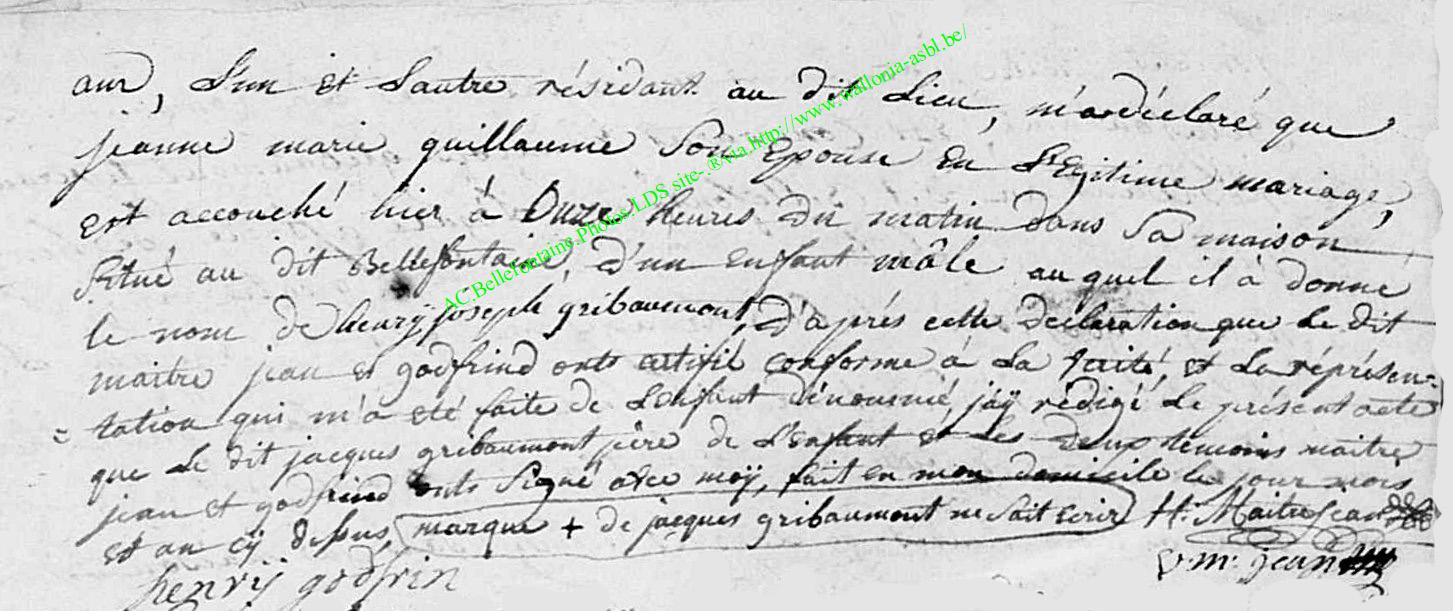 ans, L'un et L'autre résidant au dit Lieu, m'a déclaré que
jeanne marie guillaume Son Epouse En L'Egitime mariage,
est accouché hier à Onze heures du matin dans Sa maison
Situé au dit Bellefontaine, d'un enfant mâle auquel il à donné
le nom de henrÿ joseph gribaumont, d'après cette declaration que le dit
maitre jean et godfrind onts certifié conforme à la vérité, et La réprésen-
= tation qui m'a été faite de L'enfant dénommé, jaÿ rédigé Le présent acte
que Le dit jacques gribaumont père de L'enfant et les deux temoins maitre
jean et godfrind onts Signé avec moÿ, fait en mon domicile le jour mois
et an cÿ dessus, marque + de jacques gribaumont ne Sait ecrir H. Maitrejean
henrÿ godfrin
m. jean
AC.Bellefontaine.Photos.LDS site-®via.http://www.wallonia-asbl.be/